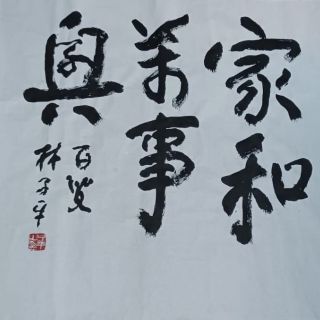 家和
萬事
興
百贊
林子平